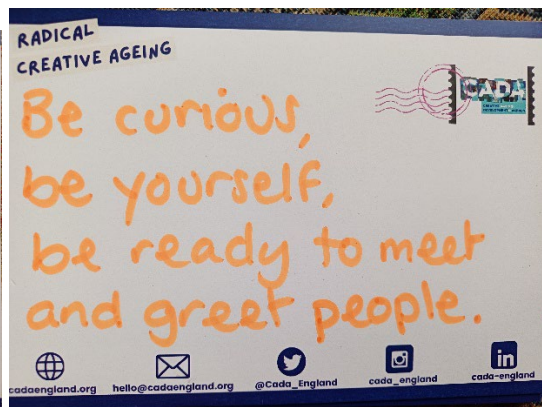 RADICAL
CREATIVE AGEING
CADA
Be curious,
be yourself,
be ready to meet
and greet people.
cadaengland.org
hello@cadaengland.org
@Cada_England
cada_england
cada-england